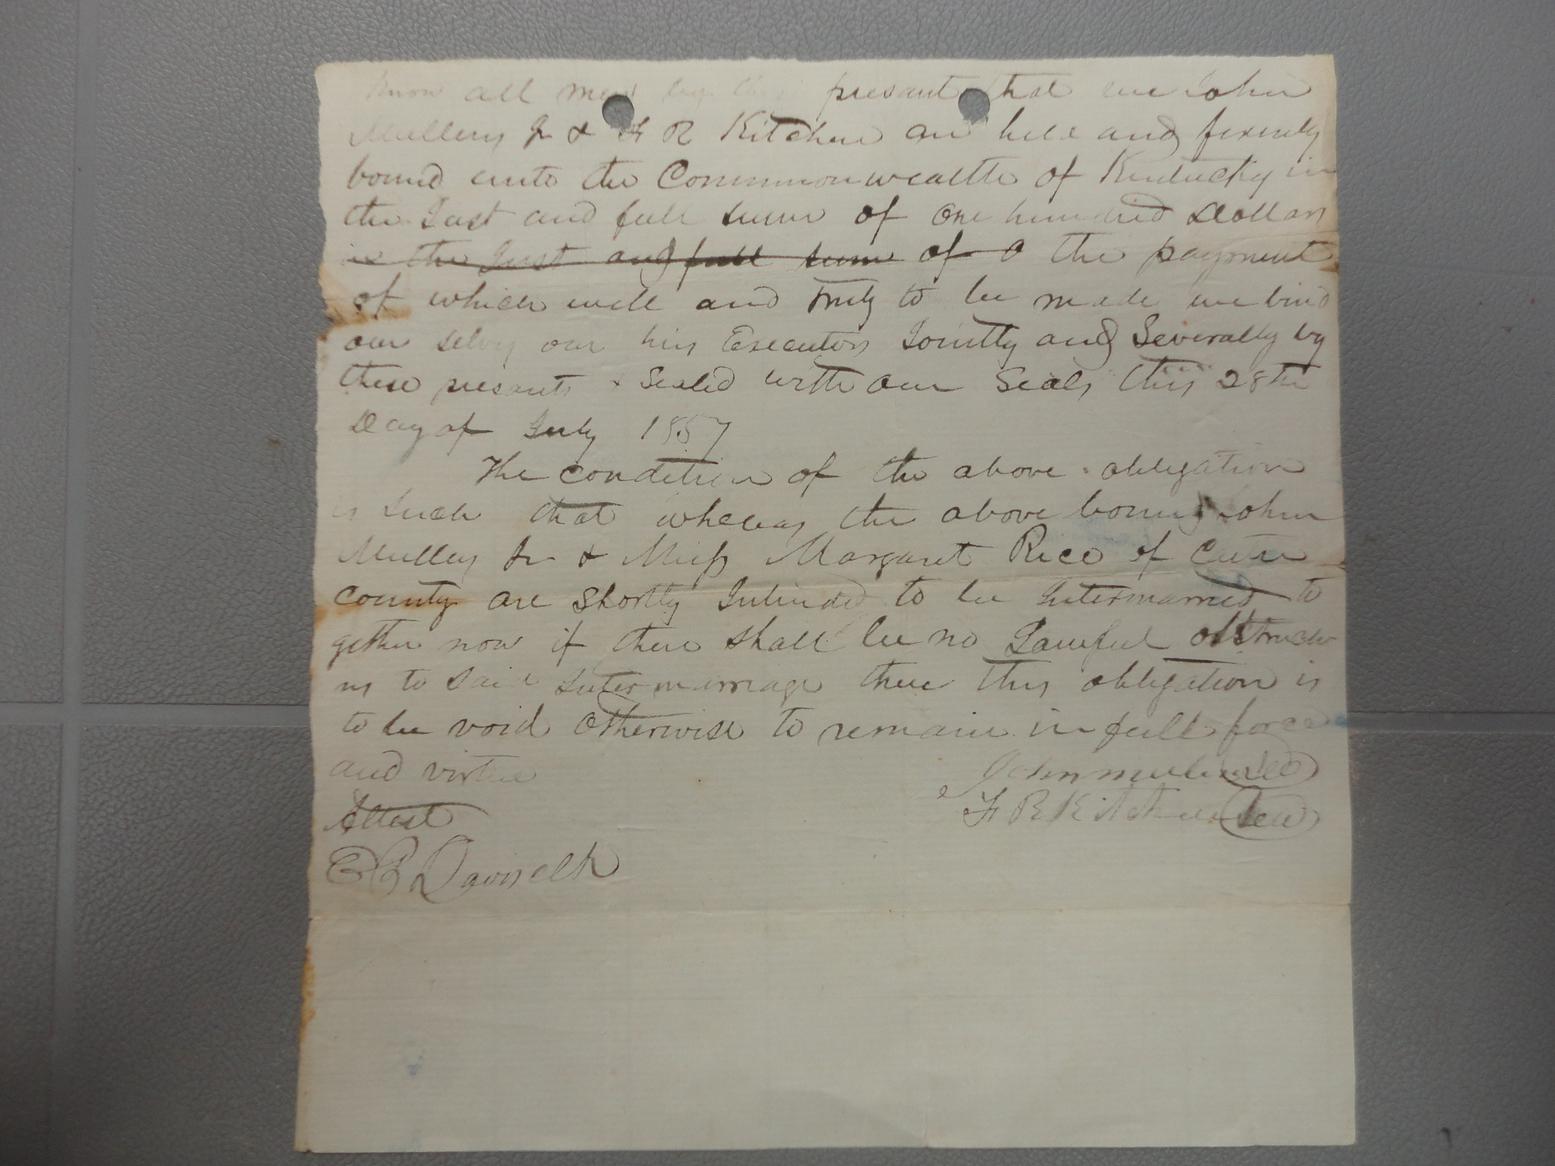 Know all men by these presants that we John
Mullens Jr & F R Kitchen are held and firmly
bound unto the Commonwealth of Kentucky in
the Just and full sum of one hundred Dollars
in the Just and full sum of the payment
of which well and truly to be made we bind
our selvs our hirs Executors Jointly and Severally by
these presants & Sealed with our Seals this 28th
Day of July 1857
The condition of the above obligation
is Such that whereas the above bound John
Mullens Jr & Miss Margaret Rice of Carter
County are Shortly Intended to be Intermarried to
gether now if there shall be no Lawful obstruck
ns to Said Intermarriage then this obligation is
to be void otherwise to remain in full force
and virtue
John Seal
Attest F R Kitchen Seal
Davis clk